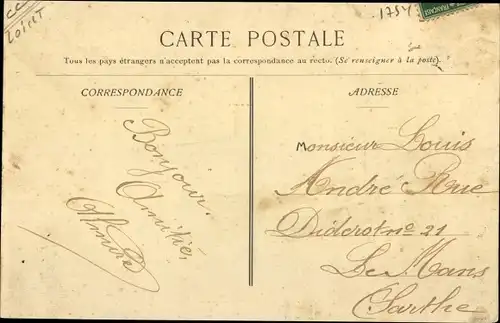 LOIRET
1754
CARTE POSTALE
Tous les pays étrangers n'acceptent pas la correspondance au recto. (Se renseigner à la poste).
CORRESPONDANCE
Bonjour.
Amitié,
ADRESSE
Monsieur Louis
André Rue
Diderot nº 21
Le Mans
Sarthe